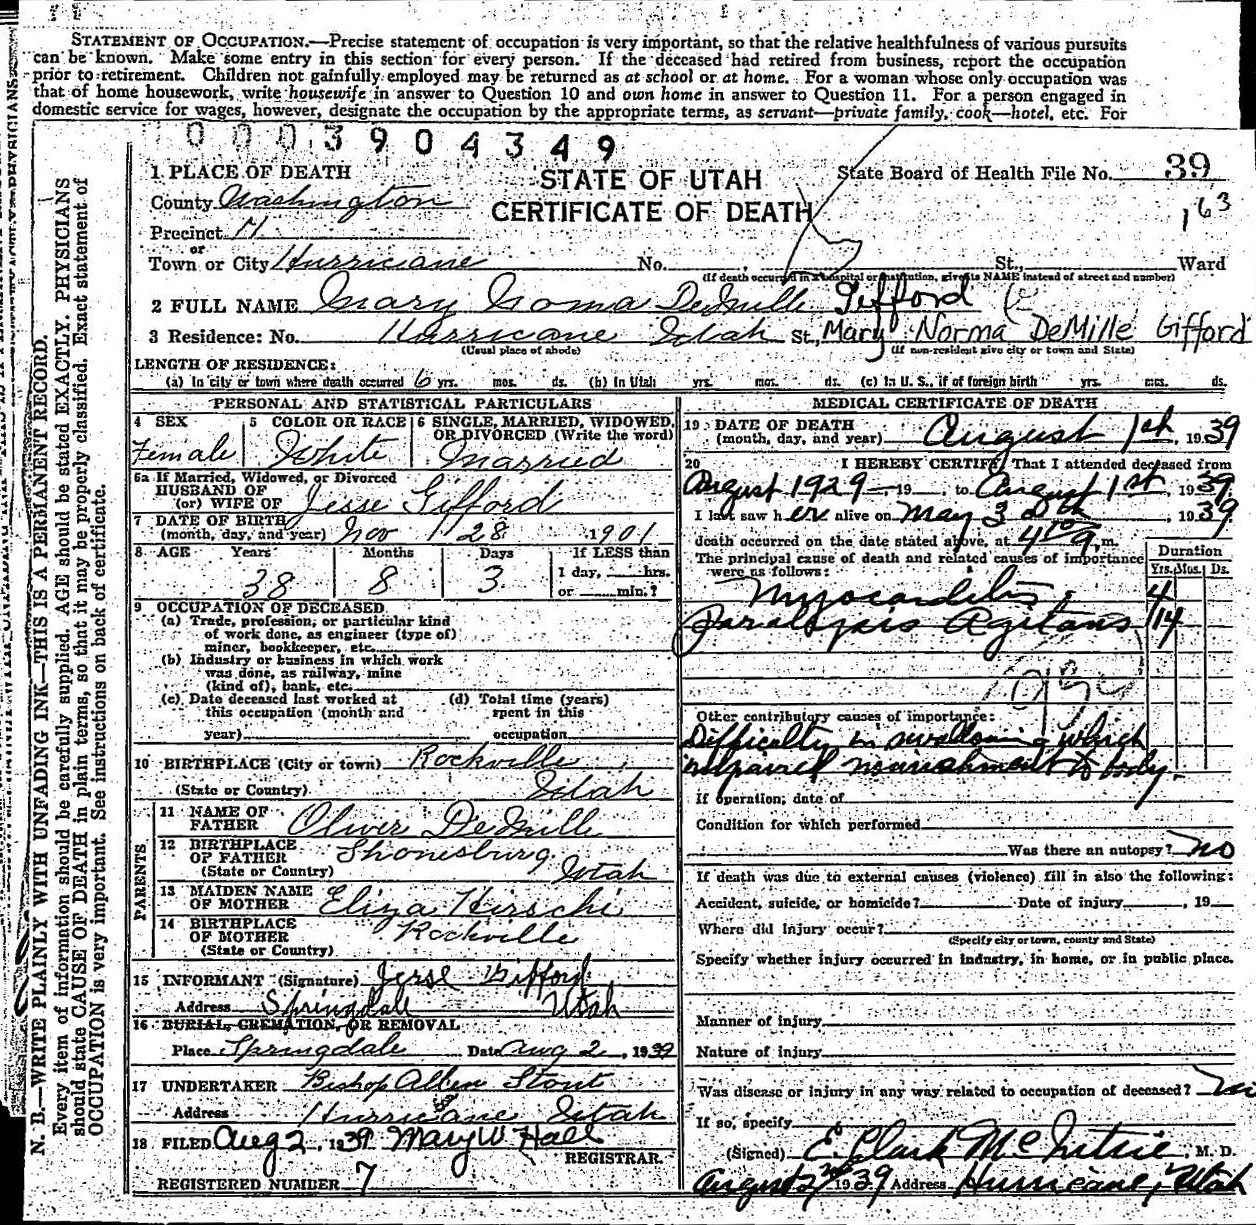 STATEMENT OF OCCUPATION.—Precise statement of occupation is very important, so that the relative healthfulness of various pursuits
can be known. Make some entry in this section for every person. If the deceased had retired from business, report the occupation
prior to retirement. Children not gainfully employed may be returned as at school or at home. For a woman whose only occupation was
that of home housework, write housewife in answer to Question 10 and own home in answer to Question 11. For a person engaged in
domestic service for wages, however, designate the occupation by the appropriate terms, as servant—private family, cook—hotel, etc. For
0003904349
N. B.—WRITE PLAINLY WITH UNFADING INK—THIS IS A PERMANENT RECORD.
Every item of information should be carefully supplied. AGE should be stated EXACTLY. PHYSICIANS
should state CAUSE OF DEATH in plain terms, so that it may be properly classified. Exact statement of
OCCUPATION is very important. See instructions on back of certificate.
STATE OF UTAH
CERTIFICATE OF DEATH
State Board of Health File No. 39
163
1 PLACE OF DEATH
County Washington
Precinct H
or
Town or City Hurricane No. , St., Ward
(If death occurred in a hospital or institution, give its NAME instead of street and number)
2 FULL NAME Mary Noma DeMille Gifford
3 Residence: No. Hurricane Utah St., Mary Norma DeMille Gifford
(Usual place of abode) (If non-resident give city or town and State)
LENGTH OF RESIDENCE:
(a) In city or town where death occurred 6 yrs. mos. ds. (b) In Utah yrs. mos. ds. (c) In U. S., if of foreign birth yrs. mos. ds.
PERSONAL AND STATISTICAL PARTICULARS
4 SEX Female
5 COLOR OR RACE White
6 SINGLE, MARRIED, WIDOWED, OR DIVORCED (Write the word) Married
6a If Married, Widowed, or Divorced
HUSBAND OF
(or) WIFE OF Jesse Gifford
7 DATE OF BIRTH
(month, day, and year) Nov 28 1901
8 AGE Years Months Days If LESS than
38 8 3 1 day, hrs.
or min.?
9 OCCUPATION OF DECEASED
(a) Trade, profession, or particular kind
of work done, as engineer (type of)
miner, bookkeeper, etc.
(b) Industry or business in which work
was done, as railway, mine
(kind of), bank, etc.
(c) Date deceased last worked at
this occupation (month and
year)
(d) Total time (years)
spent in this
occupation
10 BIRTHPLACE (City or town) Rockville
(State or Country) Utah
PARENTS
11 NAME OF
FATHER Oliver DeMille
12 BIRTHPLACE
OF FATHER Shonesburg
(State or Country) Utah
13 MAIDEN NAME
OF MOTHER Eliza Hirschi
14 BIRTHPLACE
OF MOTHER Rockville
(State or Country)
15 INFORMANT (Signature) Jesse Gifford
Address Springdale Utah
16 BURIAL, CREMATION, OR REMOVAL
Place Springdale Date Aug 2, 1939
17 UNDERTAKER Bishop Allen Stout
Address Hurricane Utah
18 FILED Aug 2, 1939 Mary W. Hall
REGISTRAR
REGISTERED NUMBER 7
MEDICAL CERTIFICATE OF DEATH
19 DATE OF DEATH
(month, day, and year) August 1st, 1939
20 I HEREBY CERTIFY That I attended deceased from
August 1929, 19 , to August 1st, 1939
I last saw her alive on May 30th, 1939
death occurred on the date stated above, at m.
The principal cause of death and related causes of importance
were as follows:
Duration
Yrs. Mos. Ds.
Myocarditis 4
Paralysis Agitans 14
Other contributory causes of importance:
Difficulty in swallowing which
impaired nourishment to body.
If operation, date of
Condition for which performed
Was there an autopsy? no
If death was due to external causes (violence) fill in also the following:
Accident, suicide, or homicide? Date of injury , 19
Where did injury occur?
(Specify city or town, county and State)
Specify whether injury occurred in industry, in home, or in public place.
Manner of injury
Nature of injury
Was disease or injury in any way related to occupation of deceased? no
If so, specify
(Signed) E. Clark McIntire, M. D.
August 2nd 1939 Address Hurricane, Utah